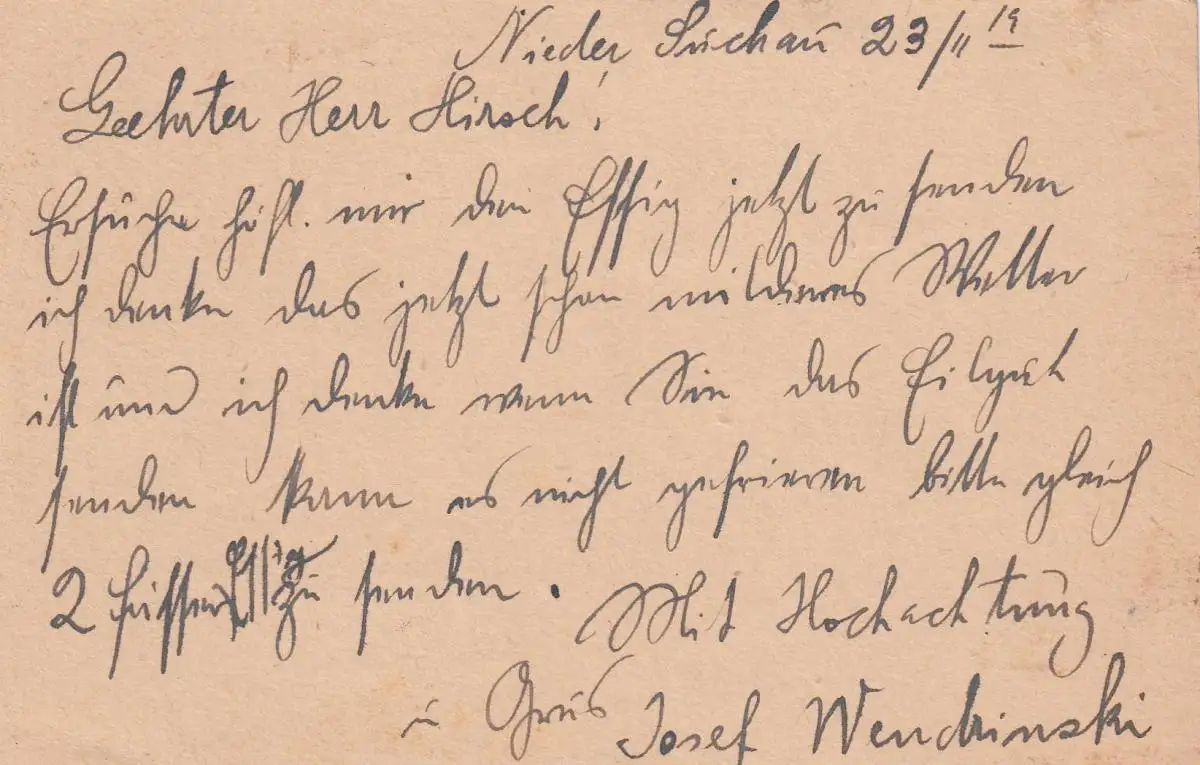 Nieder Suchau 23/II 19
Geehrter Herr Hirsch!
Ersuche höfl. mir den Essig jetzt zu senden
ich denke das jetzt schon milderes Wetter
ist und ich denke wenn Sie das Eilgut
senden kann es nicht gefrieren bitte gleich
2 Fässer Essig zu senden.
Mit Hochachtung
u Grus Josef Wendrinski